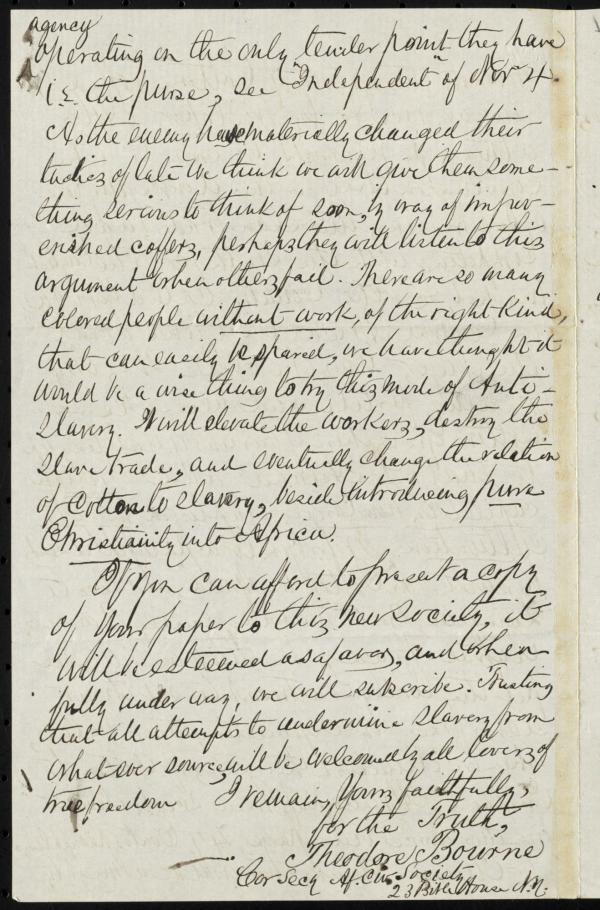 agency
operating on the only tender point they have
i.e. the purse, see "Independent" of Nov 4.
As the enemy have materially changed their
tactics of late we think we will give them some-
thing serious to think of soon, by way of impov-
erished coffers, perhaps they will listen to this
argument when others fail. There are so many
colored people without work, of the right kind,
that can easily be spared, we have thought it
would be a wise thing to try this mode of Anti-
Slavery. It will elevate the workers, destroy the
slave trade, and eventually change the relation
of cotton to slavery, beside introducing pure
Christianity into Africa.
If you can afford to present a copy
of your paper to this new society, it
will be esteemed as a favor, and when
fully under way, we will subscribe. Trusting
that all attempts to undermine slavery from
what ever source, will be welcomed by all lovers of
true freedom I remain, Yours faithfully,
for the Truth,
Theodore Bourne
Cor Secy Af. Civ. Society
23 Bible House N.Y.